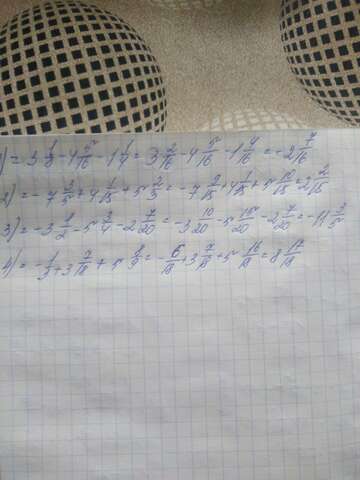 1) = 3 1/8 - 4 5/16 - 1 1/4 = 3 2/16 - 4 5/16 - 1 4/16 = -2 7/16
2) = -7 3/5 + 4 1/15 + 5 2/3 = -7 9/15 + 4 1/15 + 5 10/15 = 2 2/15
3) = -3 1/2 - 5 3/4 - 2 7/20 = -3 10/20 - 5 15/20 - 2 7/20 = -11 3/5
4) = -1/3 + 3 7/18 + 5 8/9 = -6/18 + 3 7/18 + 5 16/18 = 8 17/18